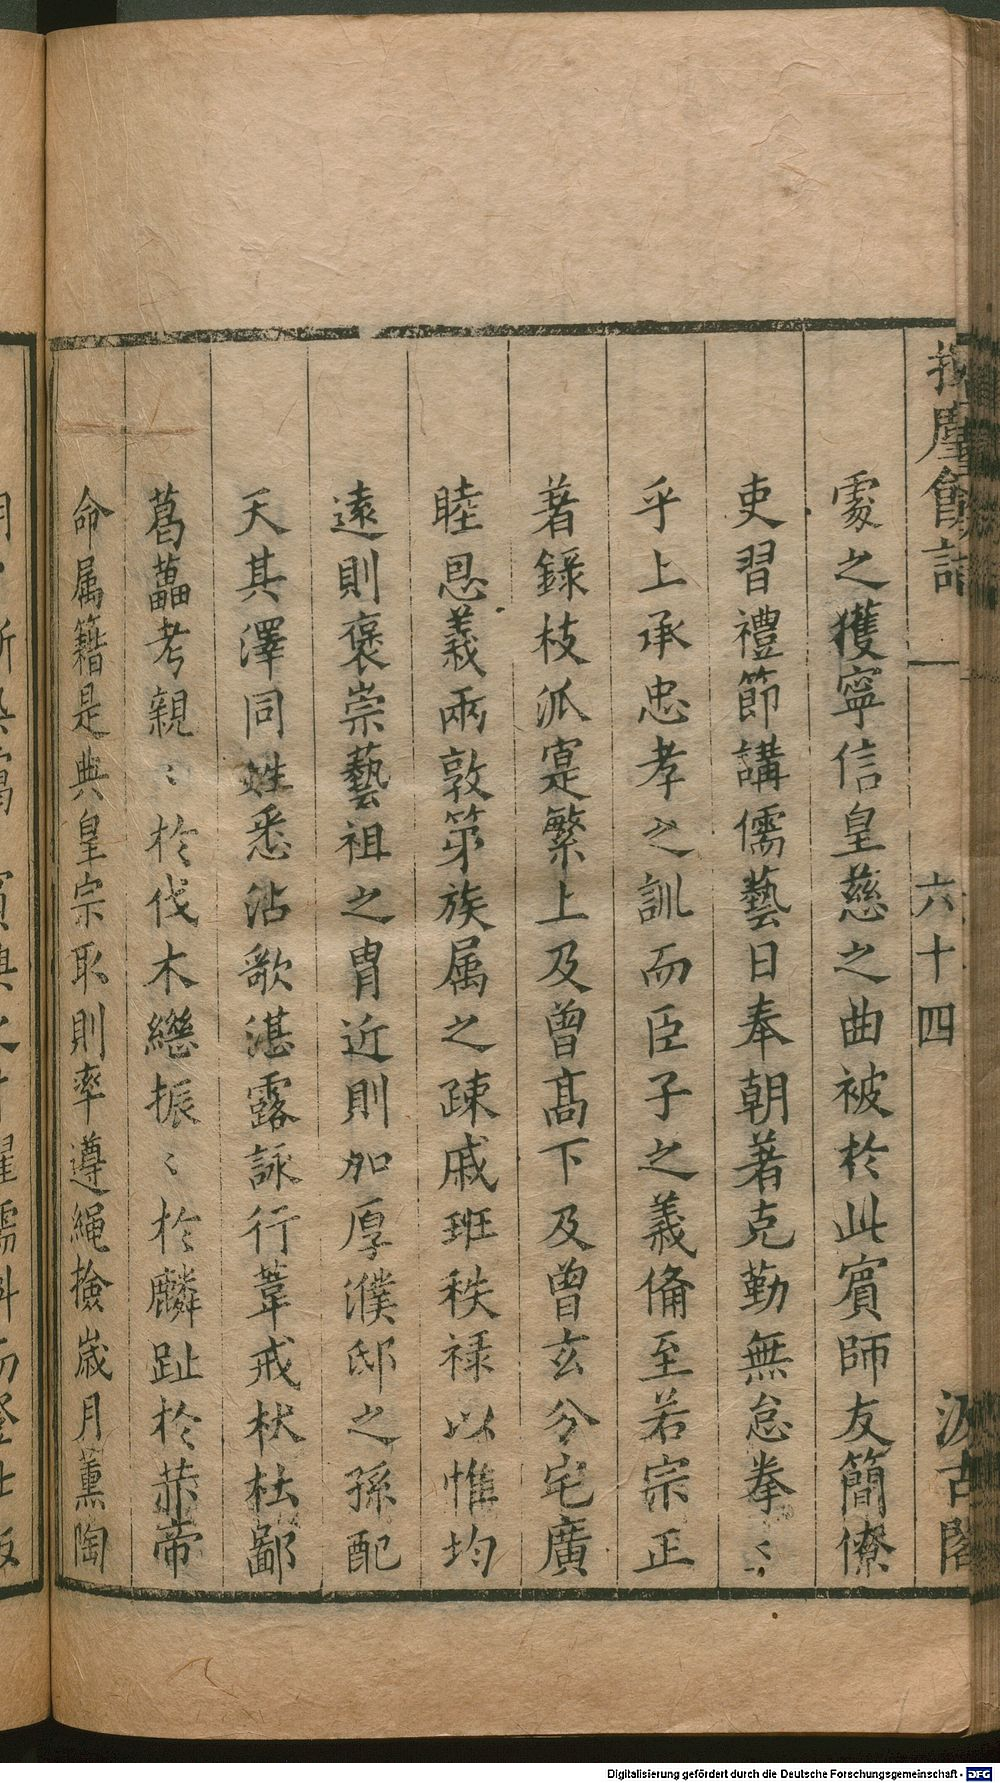 揮麈餘話 一 六十四 汲古閣
處之獲寧信皇慈之曲被於此賓師友簡僚
吏習禮節講儒藝日奉朝著克勤無怠拳〻
乎上承忠孝之訓而臣子之義僃至若宗正
著錄枝派寔繁上及曾髙下及曾玄分宅廣
睦恩義兩敦第族属之踈戚班秩禄以惟均
遠則褒崇藝祖之胄近則加厚濮邸之孫配
天其澤同姓悉沾歌湛露詠行葦戒杕杜鄙
葛藟考親〻於伐木繼振〻於麟趾於恭帝
命属籍是典皇宗取則率遵繩撿歲月薫陶
Digitalisierung gefördert durch die Deutsche Forschungsgemeinschaft - DFG